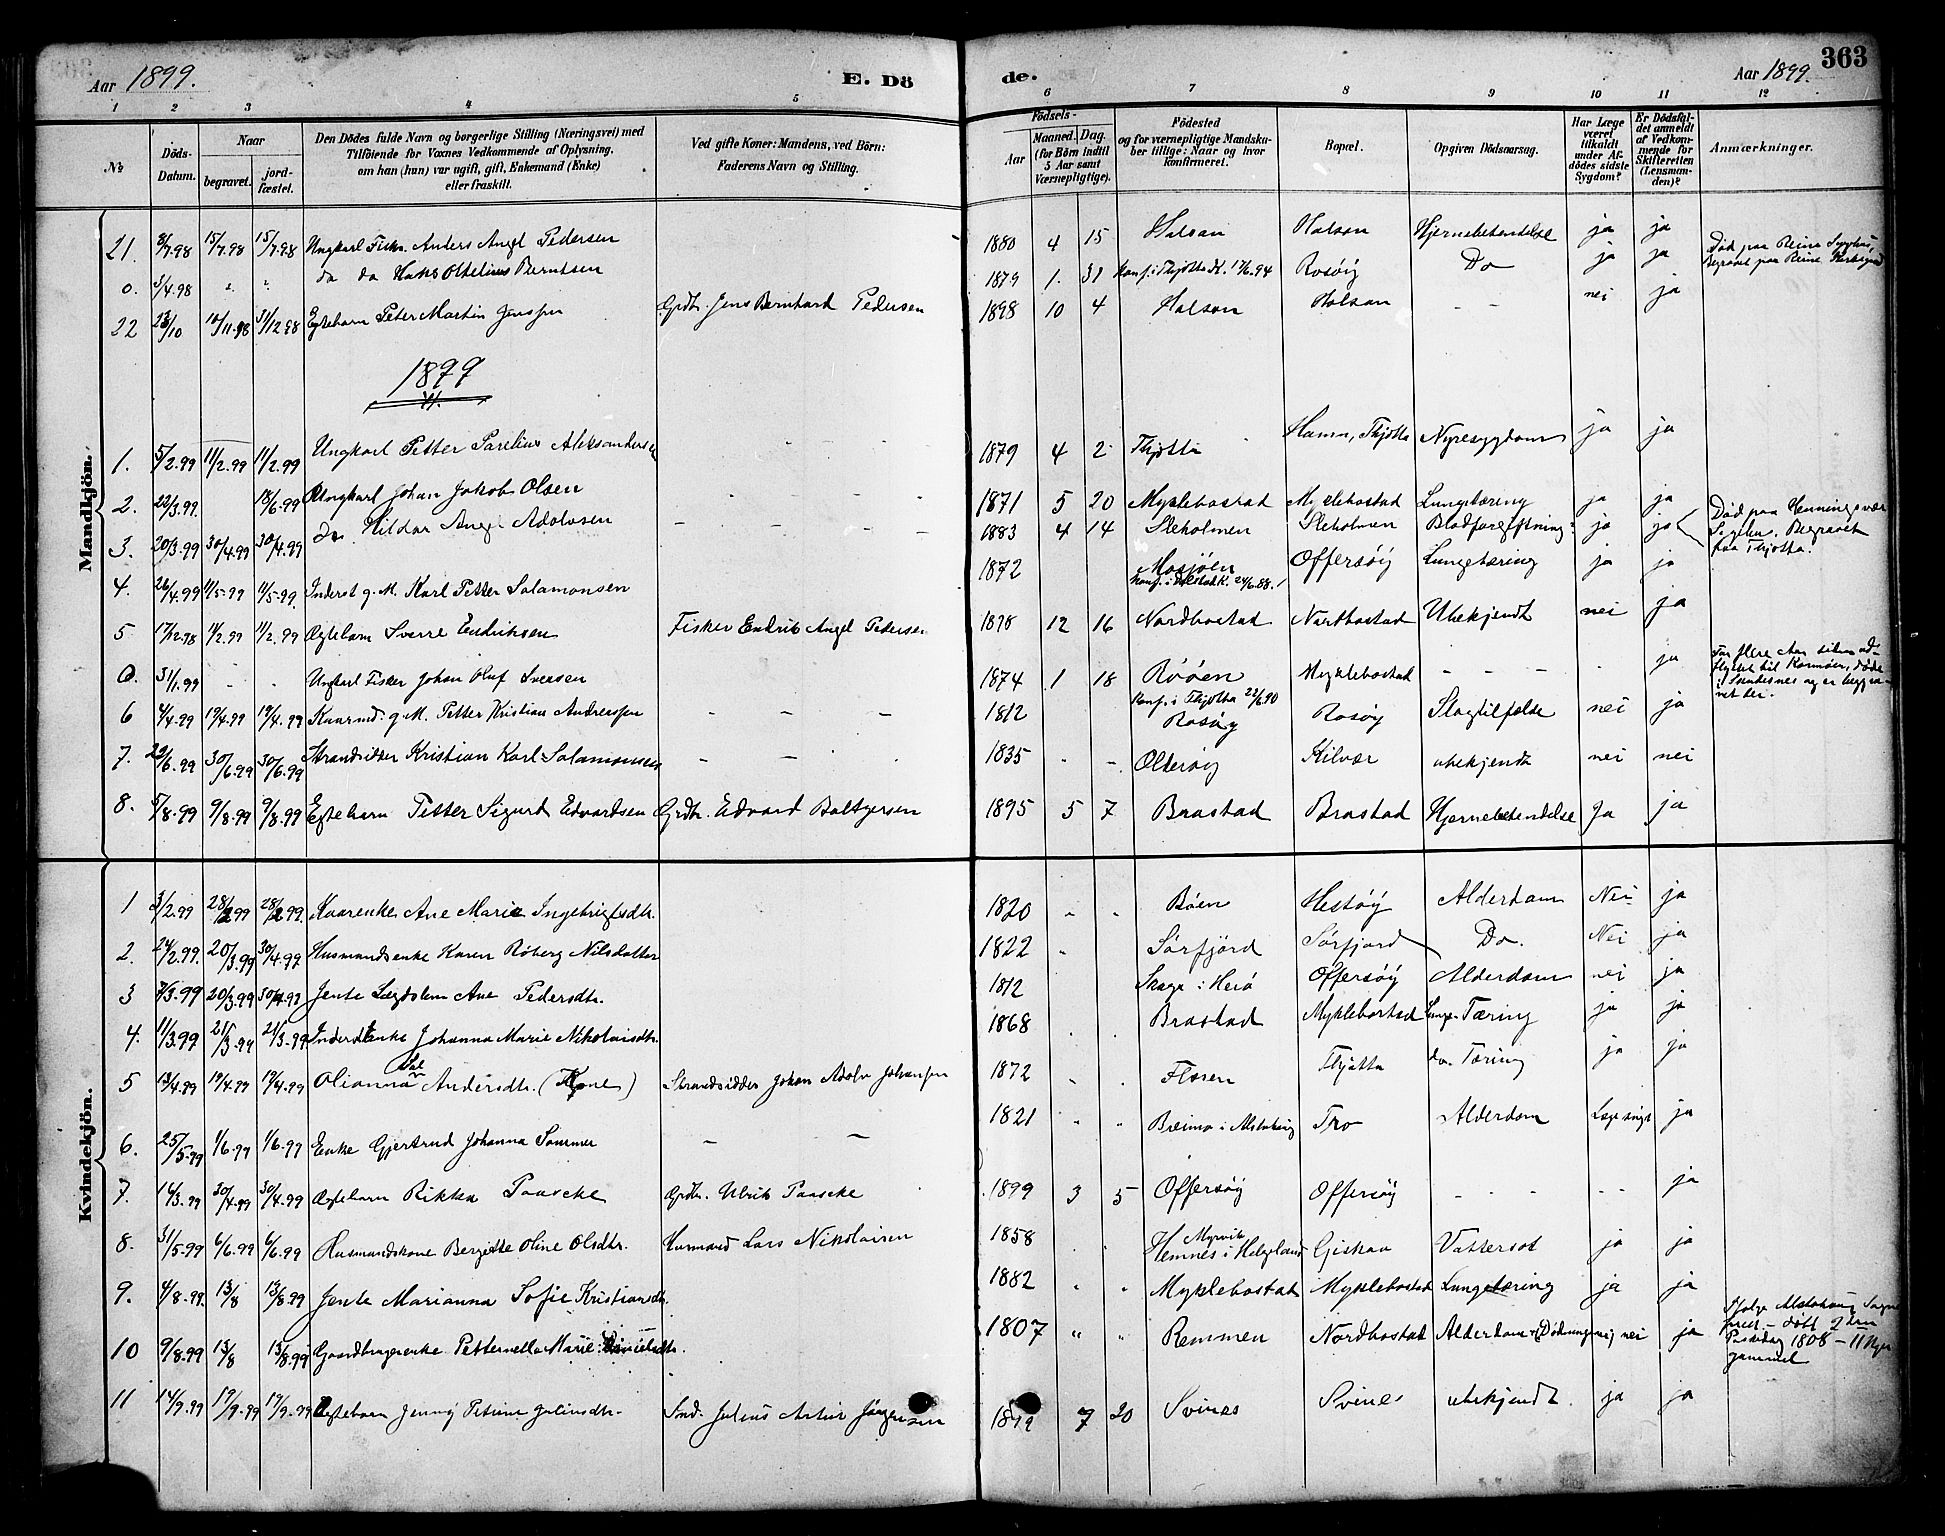 363
Aar 1899.
E. Dö
de.
Aar 1899.
1 2 3 4 5 6 7 8 9 10 11 12
No
Döds-Datum.
Naar
begravet.
jord-fæstet.
Den Dödes fulde Navn og borgerlige Stilling (Næringsvei) med
Tilföiende for Voxnes Vedkommende af Oplysning,
om han (hun) var ugift, gift, Enkemand (Enke)
eller fraskilt.
Ved gifte Koner: Mandens, ved Börn:
Faderens Navn og Stilling.
Födsels-
Aar
Maaned. Dag.
(for Börn indtil
5 Aar samt
Værnepligtige).
Födested
og for værnepligtige Mandska-
ber tillige: Naar og hvor
konfirmeret.
Bopæl.
Opgiven Dödsaarsag.
Har Læge
været
tilkaldt
under Af-
dödes sidste
Sygdom?
Er Dödsfal-
det anmeldt
af Vedkom-
mende for
Skifteretten
(Lensman-
den)?
Anmærkninger.
Mandkjön.
21. 8/7.98 15/7.98 15/7.98 Ungkarl Fisk. Anders Angel Pedersen 1880 4 15 Halsan Halsan Hjernebetendelse ja ja Död paa Reine Sygehus, Begravet paa Reine Kirkegaard
0. 3/4.98 " " do do Hans Ottelius Berntsen 1879 1. 31 Konf. i Thjotta K. 17/6.94 Rosöig Do ja ja
22 23/10 10/11.98 31/12.98 Egtebarn Peter Martin Jenssen Grdbr. Jens Bernhard Pedersen 1898 10 4 Halsan Halsan - - nei ja
1899
1. 5/2.99 11/2.99 11/2.99 Ungkarl Petter Parelius Aleksandersen - - - 1879 4 2 Thjotta Hamn, Thjotta Nyresygdom ja ja
2. 22/3.99 18/6.99 Ungkarl Johan Jakob Olsen - - - 1871 5 20 Myklebostad Myklebostad Lungetæring ja ja
3. 20/3.99 30/4.99 30/4.99 do Hildar Angel Adolvsen - - - 1883 4 14 Sleholmen Sleholmen Blodforgiftning ja ja Död paa Henningsvær Sygehus. Begravet paa Thjotta.
4. 26/4.99 11/5.99 11/5.99. Inderst g. M. Karl Petter Salamonsen 1872 Mosjöen Konf. i K. 24/6.88. Offersöy Lungetæring ja ja
5 17/12.98 11/2.99 11/2.99 Ægtebarn Sverre Endriksen Fisker Endrik Angel Pedersen 1898 12 16 Nordbostad Nordbostad Ubekjendt nei ja
0. 31/1.99 - - Ungkarl Fisker Johan Oluf Svensen 1874 1 18 Rööen Konf. i Thjotta 22/6.90 Myklebostad - - - - ja For flere Aar siden ud- flyttet til Karmöen, döde i og er begra- vet der.
6 4/4.99 19/4.99 19/4.99 Kaarmd. g. M. Petter Kristian Anderssen - - 1812 Rosöy Rosöy Slagtilfælde nei ja
7. 22/6.99 30/6.99 30/6.99 Strandsidder Kristian Karl Salamonsen - - 1835 - - Olderöig Skilvær ubekjendt nei nei
8. 5/8.99 9/8.99 9/8.99 Egtebarn Petter Sigurd Edvardsen Grdbr. Edvard Baltzersen 1895 5 7 Brastad Brastad Hjernebetendelse Ja ja
Kvindekjön.
1 3/2.99 28/2.99 28/2.99. Kaarenke Ane Marie Ingebrigtsdtr. 1820 " " Böen Hestöy Alderdom Nei ja
2. 24/2.99. 20/3.99 30/4.99 Husmandsenke Karen Röberg Nilsdatter 1822 " Sörfjord Sörfjord Do. Nei ja
3 7/3.99 20/3.99 30/4.99 Jente Lægdslem Ane Pedersdtr. 1812 Skage i Herö Offersöy Alderdom nei ja
4. 11/3.99 21/3.99 21/3.99 Inderstenke Johanna Marie Nikolaisdtr. 1868 " " Brastad Myklebostad Lunge-Tæring ja ja
5 13/4.99 19/4.99 19/4.99 Olianna Andersdtr. (Kone) Strandsidder Johan Adolv Johansen 1872 " " Floren Thjotta do. Tæring ja ja
6. 25/5.99 1/6.99 1/6.99 Enke Gjertrud Johanna Sommer - - 1821 " " Breimo i Alstahaug Tro Alderdom Læge ja
7. 14/3.99 30/4.99 30/4.99 Ægtebarn Rikka Paascke Grdbr. Ulrik Paascke 1899 3 5 Offersöy Offersöy - - - - - ja
8. 31/5.99 6/6.99 6/6.99 Husmandskone Bergitte Oline Olsdtr. Husmand Lars Nikolaisen 1858 " " Myrvik Hemnes i Helgeland Giskaa Vattersot ja ja
9. 4/8.99. 13/8 13/8.99 Jente Marianna Sofie Kristiansdtr. 1882 " " Myklebostad Myklebostad Lungetæring ja ja
10 9/8.99 13/8 13/8.99 Gaardbrugerenke Petternella Marie Danielsdtr. 1807 " " Remmen Nordbostad Alderdom nei ja Ifølge Alstahaug 2den Paaskedag 1808 - 11 Uger gammel
11 14/9.99 17/9.99 17/9.99 Ægtebarn Jenny Petrine Juliusdtr. Julius Artur Jörgensen 1899 7 20 Svines Svines ubekjendt. ja ja